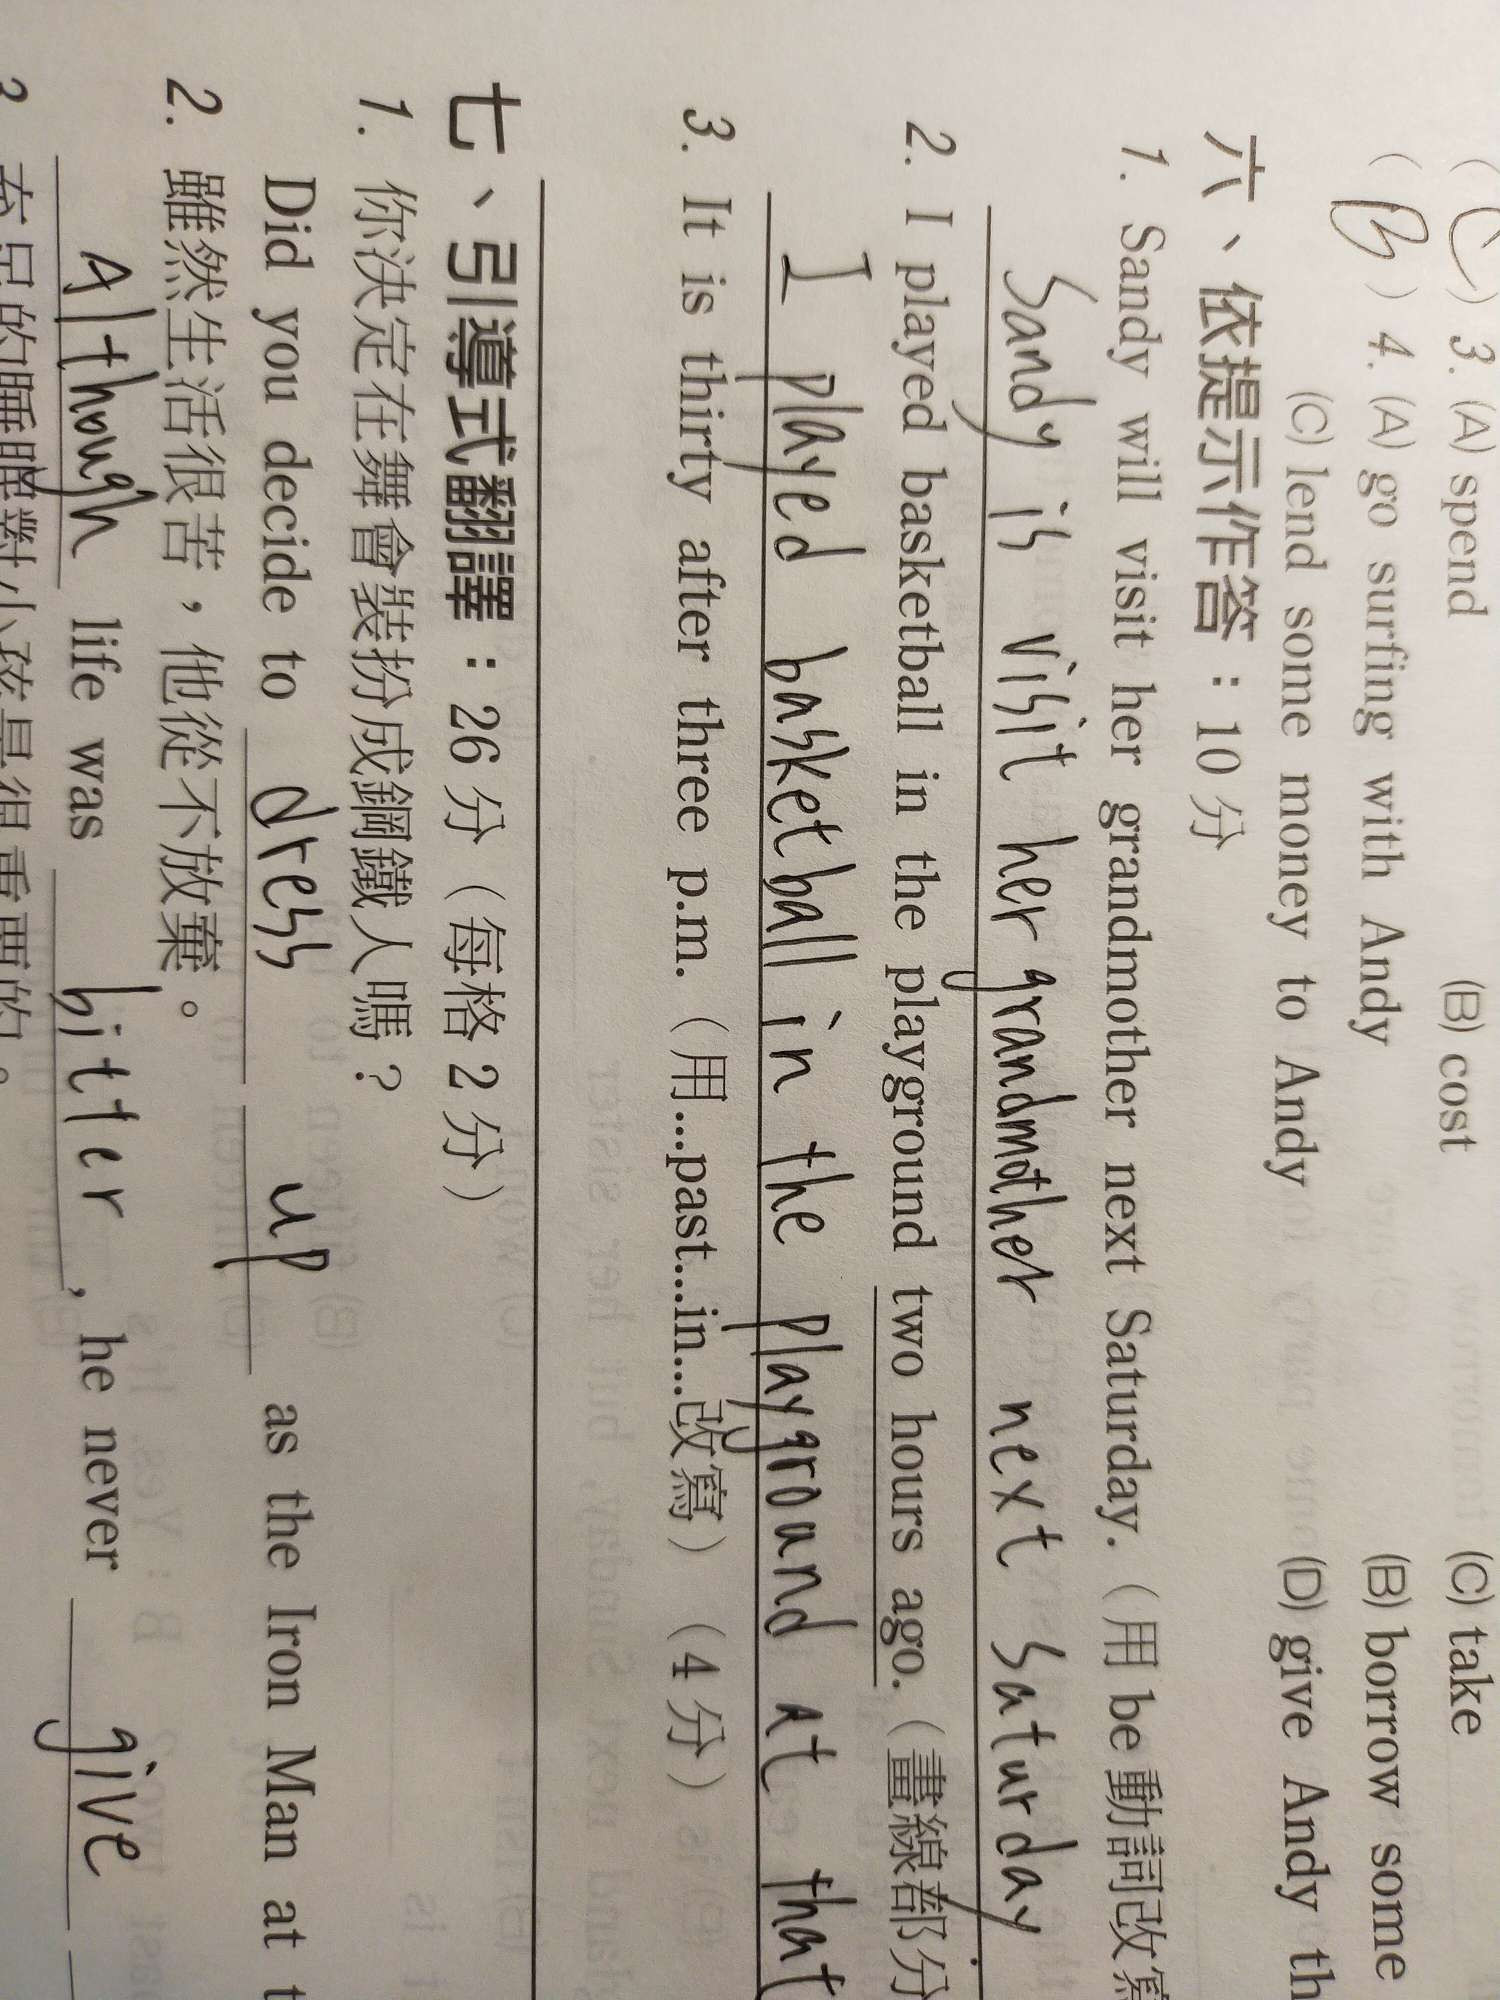 (C) 3. (A) spend (B) cost (C) take
(B) 4. (A) go surfing with Andy (B) borrow some
(C) lend some money to Andy (D) give Andy th
六、依提示作答：10分
1. Sandy will visit her grandmother next Saturday.（用 be 動詞改寫
Sandy is visit her grandmother next Saturday
2. I played basketball in the playground two hours ago.（畫線部分
I played basketball in the playground at that
3. It is thirty after three p.m.（用...past...in...改寫）（4分）
七、引導式翻譯：26分（每格2分）
1. 你決定在舞會裝扮成鋼鐵人嗎？
Did you decide to dress up as the Iron Man at t
2. 雖然生活很苦，他從不放棄。
Although life was bitter, he never give
3. 充足的睡眠對小孩是很重要的。